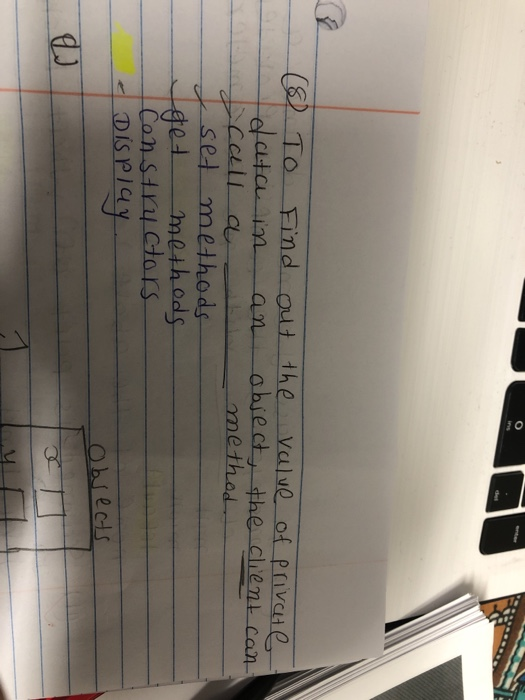 (8) To Find out the value of private
data in an object, the client can
call a ___ method.
set methods
get methods
Constructors
- Display
Objects
x
y